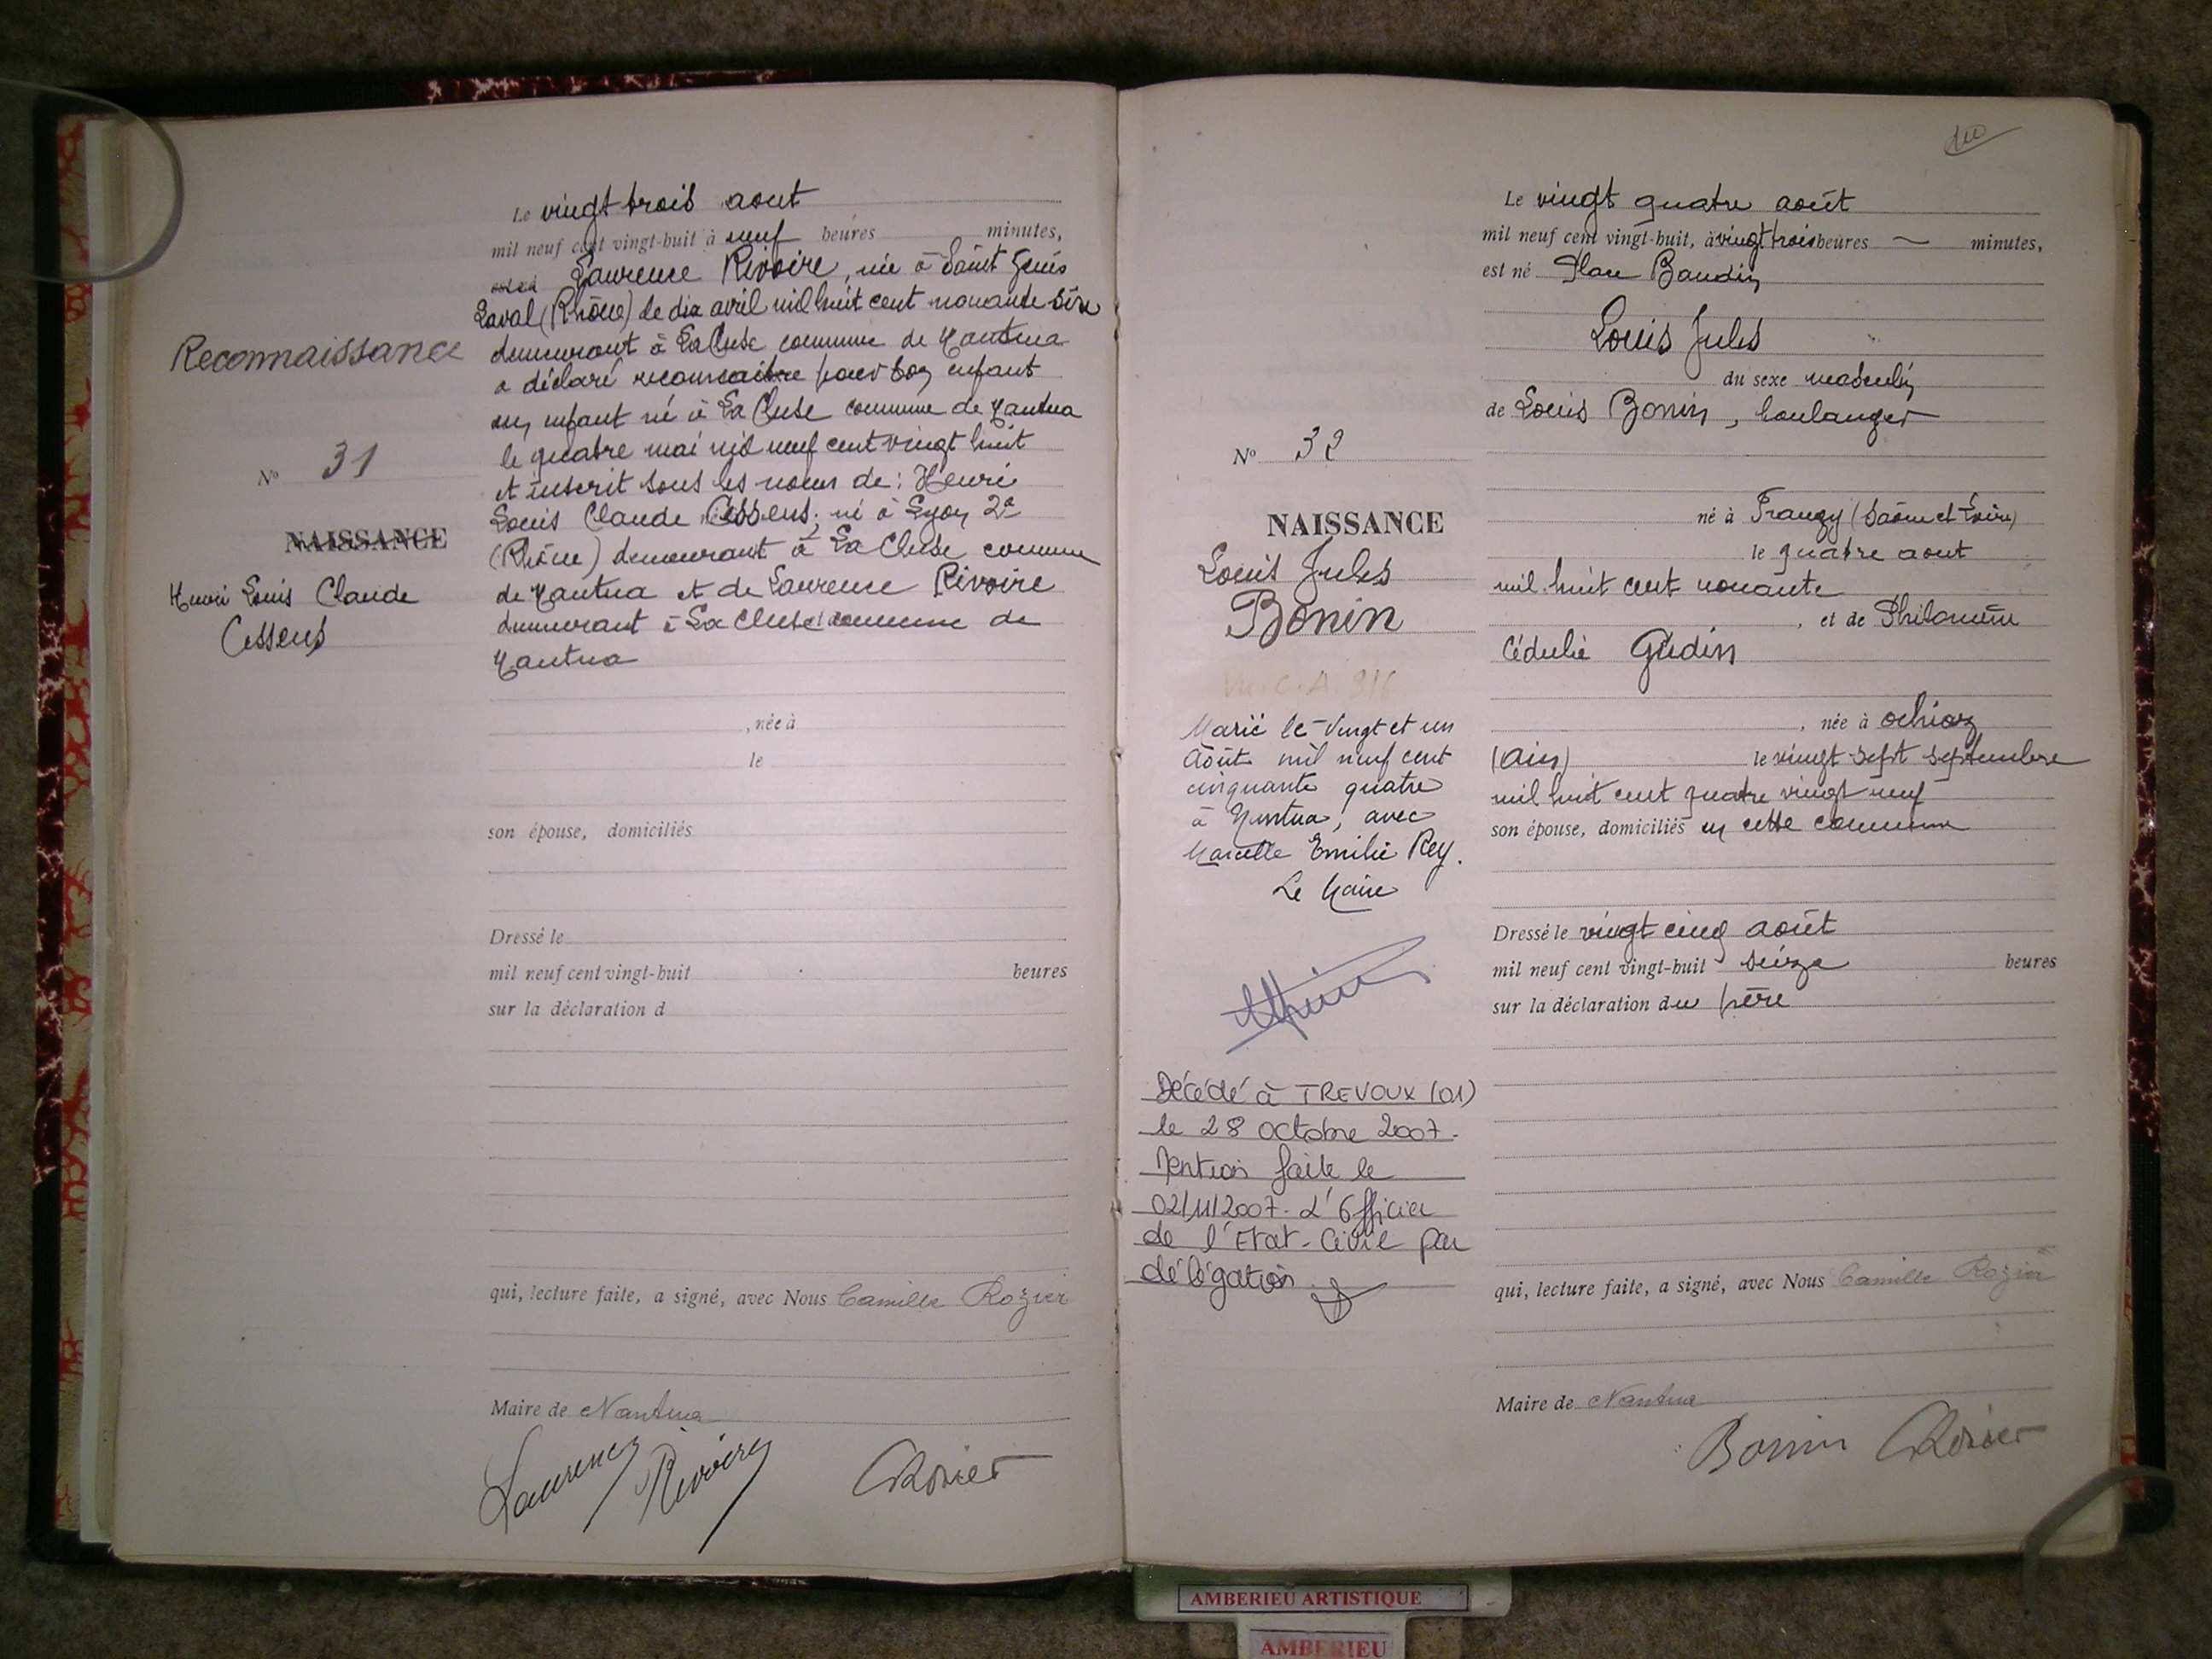 Reconnaissance
N° 31
NAISSANCE
Henri Louis Claude
Cessens
Le vingt trois aout
mil neuf cent vingt-huit à neuf heures minutes,
Laurence Rivoire, née à Saint Genis
Laval (Rhône) le dix avril mil huit cent nonante six
demeurant à La Cluse commune de Nantua
a déclaré reconnaitre pour son enfant
un enfant né à La Cluse commune de Nantua
le quatre mai mil neuf cent vingt huit
et inscrit sous les noms de : Henri
Louis Claude Cessens, né à Lyon 2e
(Rhône) demeurant à La Cluse commune
de Nantua et de Laurence Rivoire
demeurant à La Cluse commune de
Nantua
, née à
le
son épouse, domiciliés
Dressé le
mil neuf cent vingt-huit heures
sur la déclaration d
qui, lecture faite, a signé, avec Nous Camille Rozier
Maire de Nantua
Laurence Rivoire CRozier
N° 32
NAISSANCE
Louis Jules
Bonin
Marié le vingt et un
Août mil neuf cent
cinquante quatre
à Nantua, avec
Marcelle Emilie Rey.
Le Maire
Décédé à TREVOUX (01)
le 28 octobre 2007.
Mention faite le
02/11/2007. L'Officier
de l'Etat-Civil par
délégation
Le vingt quatre août
mil neuf cent vingt-huit, à vingt trois heures — minutes,
est né Place Baudin
Louis Jules
du sexe masculin
de Louis Bonin, boulanger
né à Frangy (Saône et Loire)
le quatre aout
mil huit cent nonante
, et de Philomène
Cédulie Gudin
, née à Ochiaz
(Ain) le vingt sept septembre
mil huit cent quatre vingt neuf
son épouse, domiciliés en cette commune
Dressé le vingt cinq août
mil neuf cent vingt-huit seize heures
sur la déclaration du père
qui, lecture faite, a signé, avec Nous Camille Rozier
Maire de Nantua
Bonin CRozier
AMBERIEU ARTISTIQUE
AMBERIEU